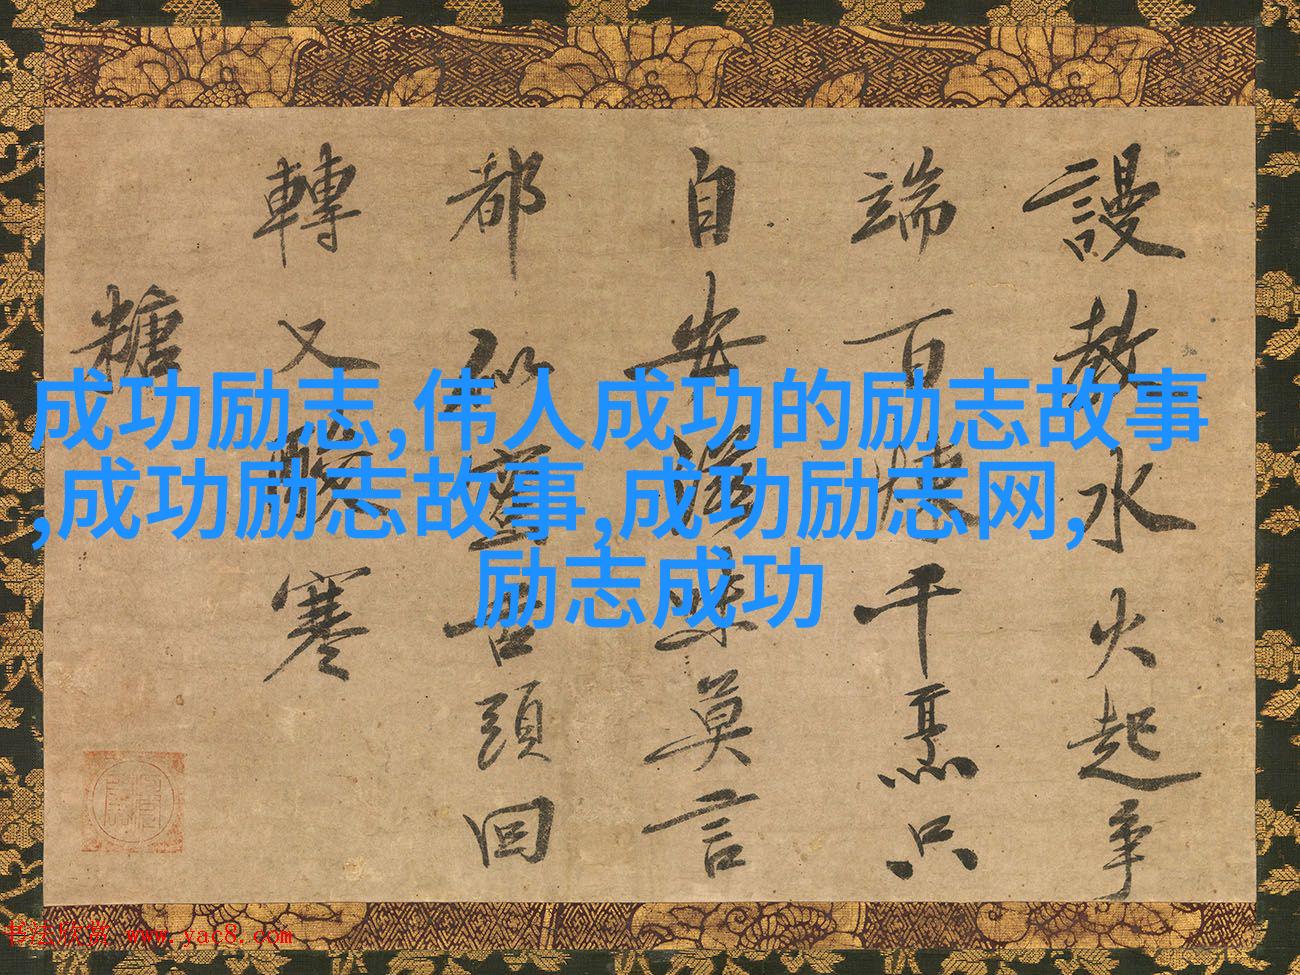 謾教水火起爭
端百千只
自安滋味莫言
都似苦頭回
轉又酸寒
糖
成功励志,伟人成功的励志故事
,成功励志故事,成功励志网,
励志成功
书法欣赏 www.yac8.com